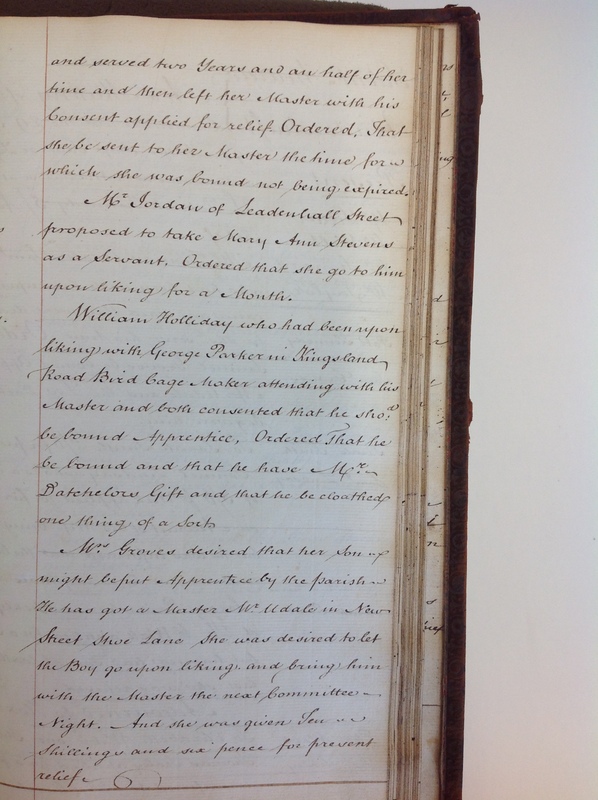 and served two Years and an half of her
time and then left her Master with his
Consent applied for relief. Ordered, That
she be sent to her Master the time for
which she was bound not being expired.
Mr. Jordan of Leadenhall Street
proposed to take Mary Ann Stevens
as a Servant. Ordered that she go to him
upon liking for a Month.
William Holliday who had been upon
liking with George Parker in Kingsland
Road Bird Cage Maker attending with his
Master and both consented that he shod.
be bound Apprentice, Ordered That he
be bound and that he have Mrs.
Datchelors Gift and that he be cloathed
one thing of a Sort
Mrs Groves desired that her Son
might be put Apprentice by the parish
He has got a Master Mr. Udale in New
Street Shoe Lane She was desired to let
the Boy go upon liking and bring him
with the Master the next Committee
Night. And she was given Ten
Shillings and six pence for present
relief